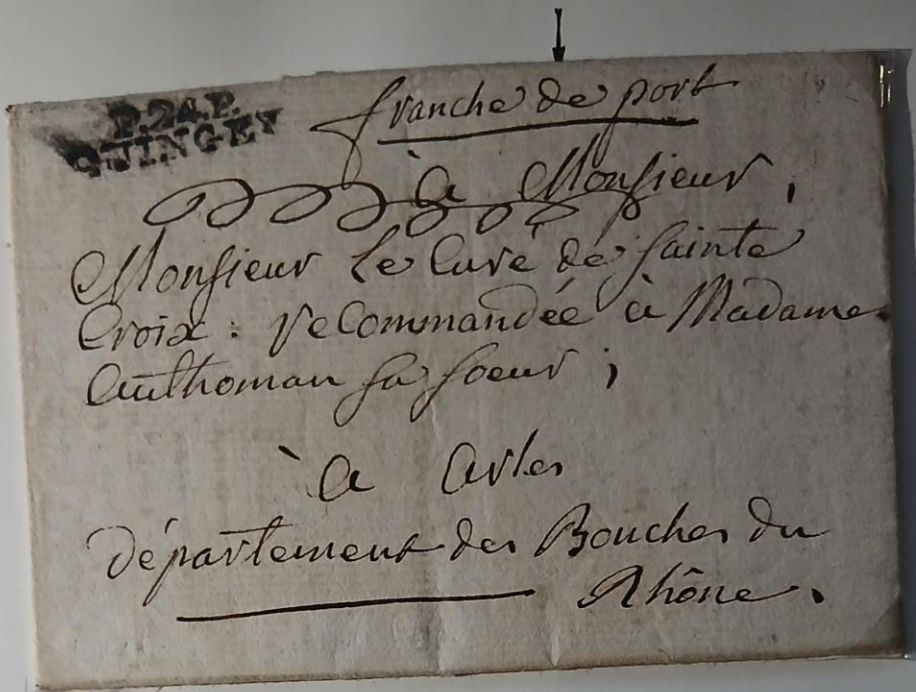 P.24.P.
QUINGEY
franche de port
à Monsieur,
Monsieur le Curé de Sainte
Croix : recommandée à Madame
Authoman sa soeur ;
à Arles
Département des Bouches du
Rhône.